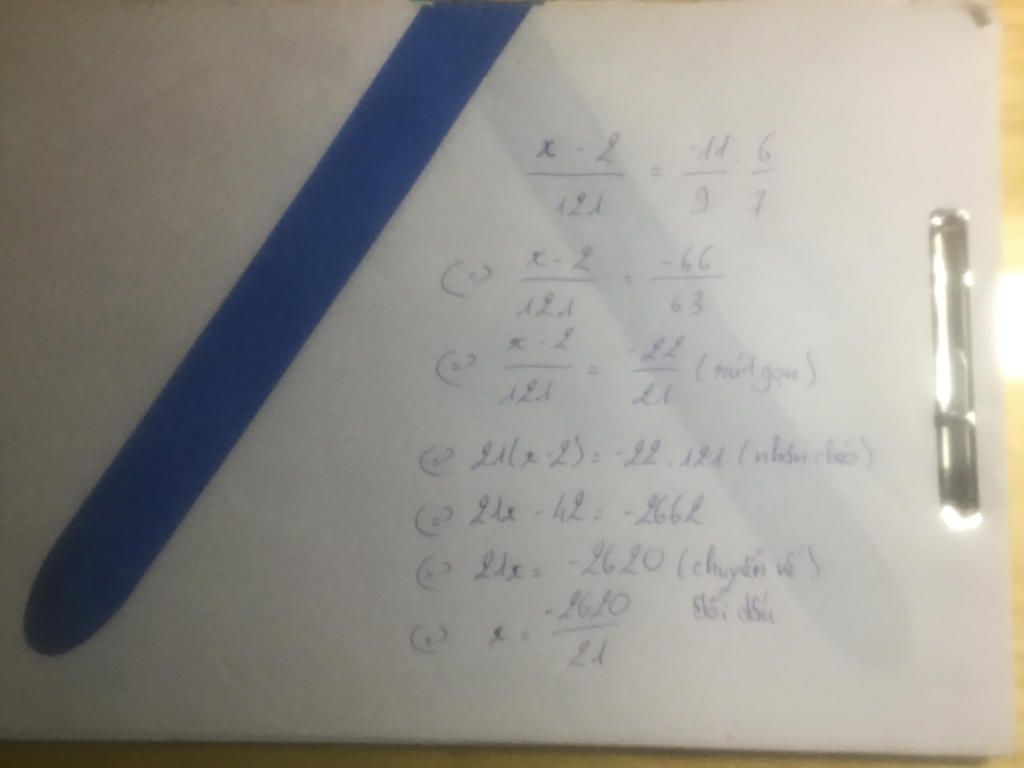 x - 2 / 121 = -11 / 9 . 6 / 7
(=) x - 2 / 121 = -66 / 63
(=) x - 2 / 121 = -22 / 21 (rút gọn)
(=) 21(x-2) = -22 . 121 (nhân chéo)
(=) 21x - 42 = -2662
(=) 21x = -2620 (chuyển vế)
đổi dấu
(=) x = -2620 / 21